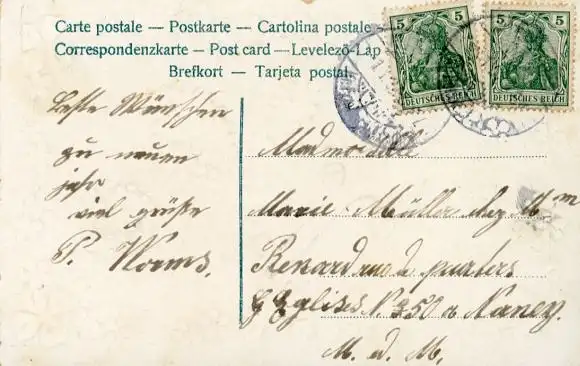 Carte postale — Postkarte — Cartolina postale
Correspondenzkarte — Post card — Levelező-Lap
Brefkort — Tarjeta postal.
5 5
DEUTSCHES REICH
5 5
DEUTSCHES REICH
beste Wünschen
zu neuen
jahr
viel grüße
P. Worms.
Madmoisell
Marie Müller chez Mm
Renard rue de
Eglises N 50 a Nancy.
M. d. M.